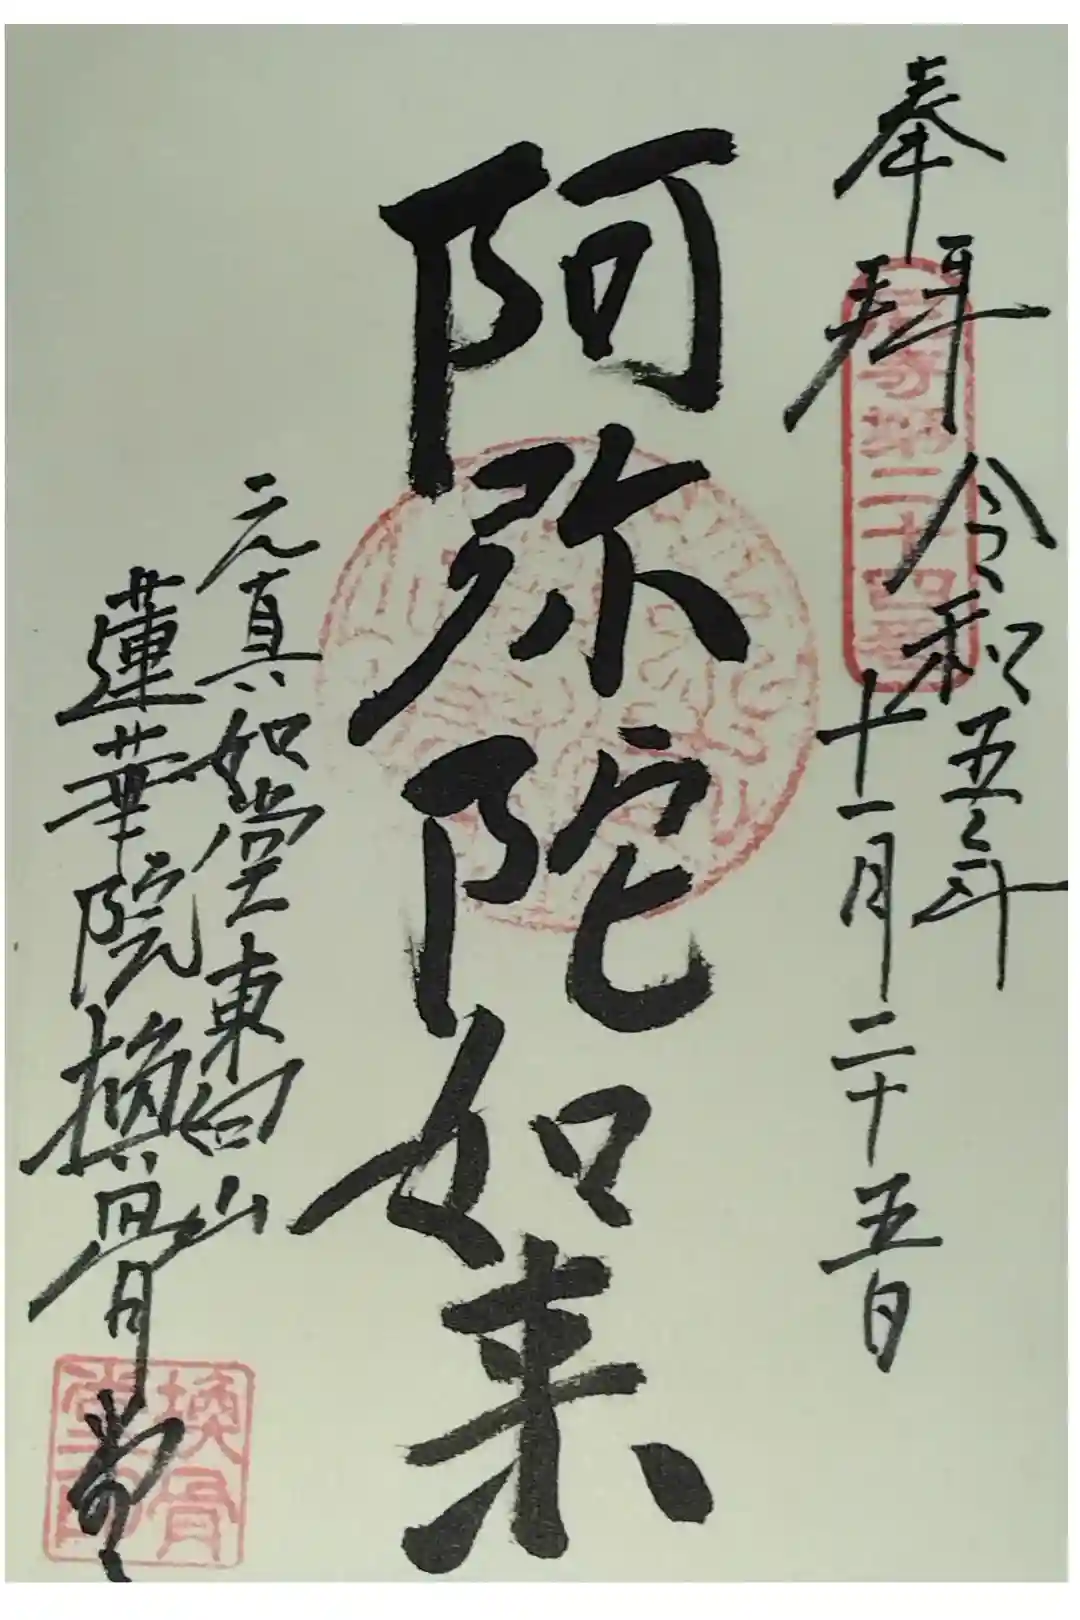 奉拜
令和五年
十一月二十五日
阿弥陀如来
元真如堂東向山
蓮華院換骨堂
換骨堂印